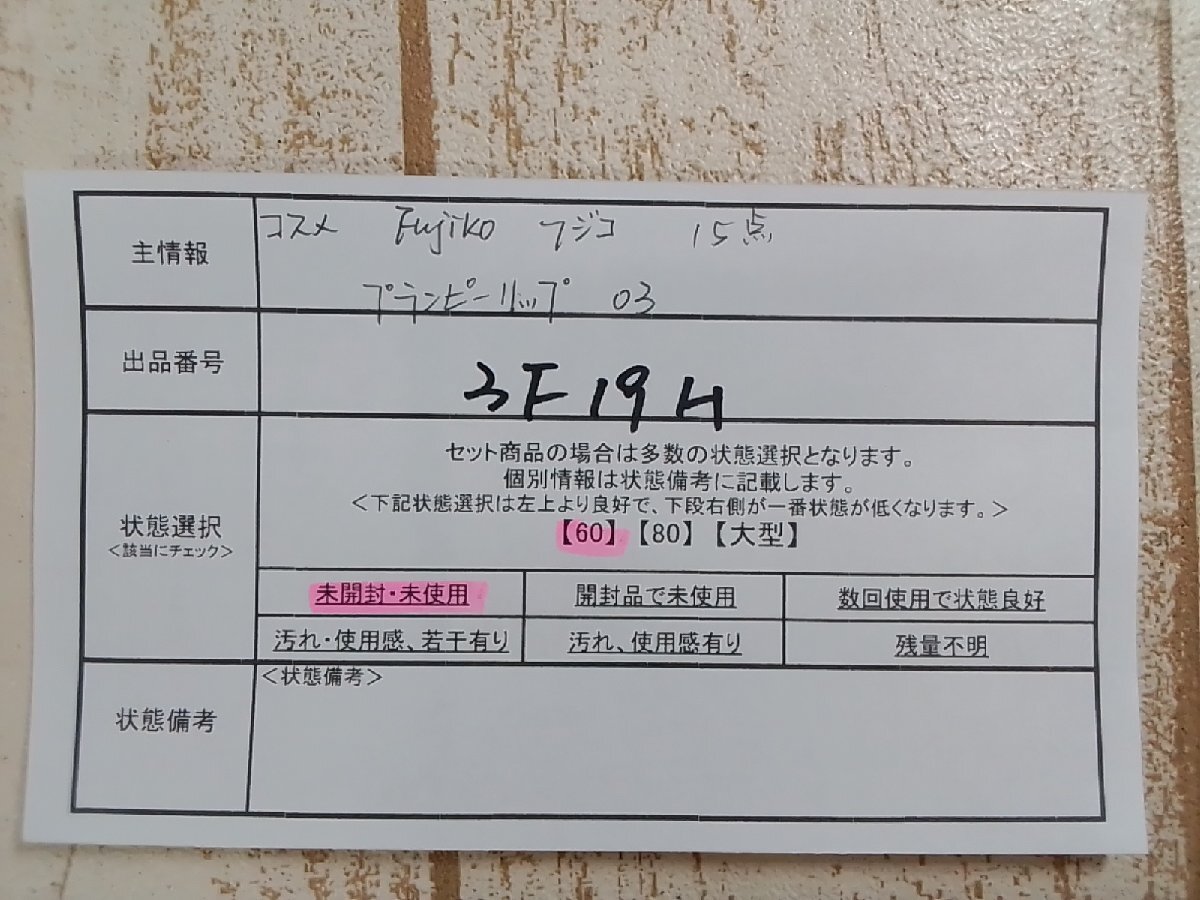 主情報
コスメ Fujiko フジコ 15点
プランピーリップ 03
出品番号
3F19H
状態選択
＜該当にチェック＞
セット商品の場合は多数の状態選択となります。
個別情報は状態備考に記載します。
＜下記状態選択は左上より良好で、下段右側が一番状態が低くなります。＞
【60】【80】【大型】
未開封・未使用 開封品で未使用 数回使用で状態良好
汚れ・使用感、若干有り 汚れ、使用感有り 残量不明
状態備考
＜状態備考＞